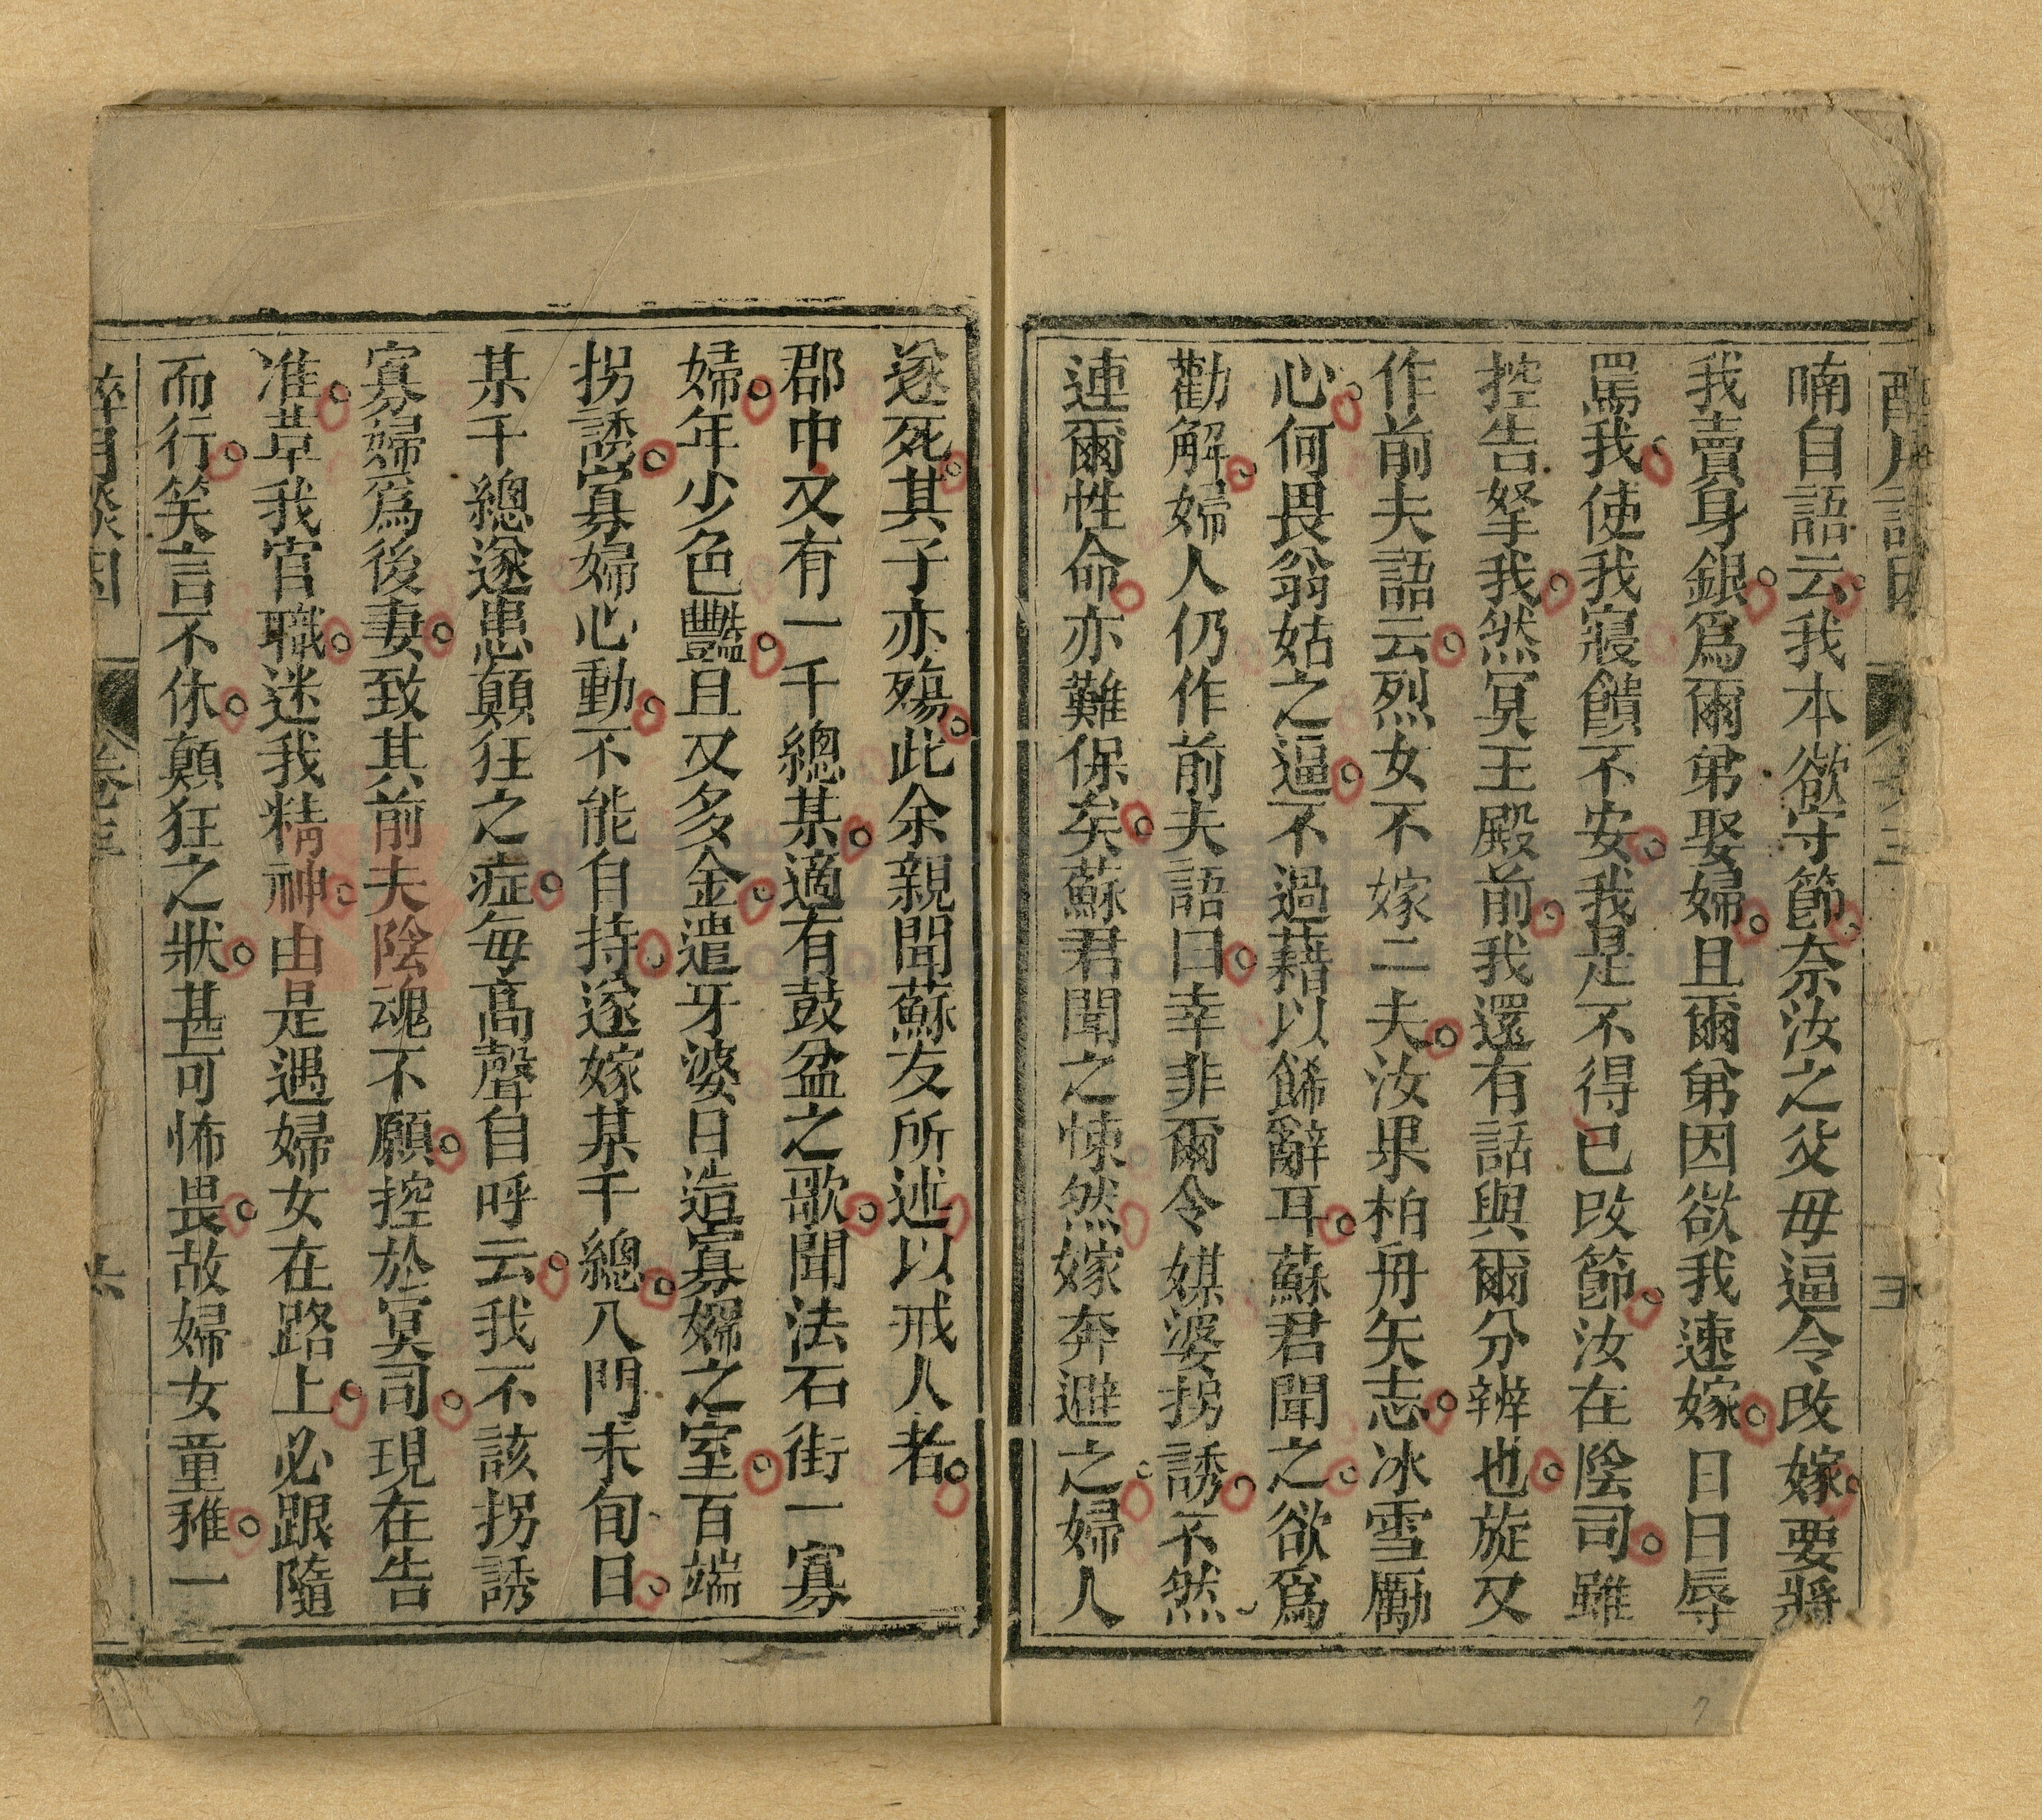 喃自語云我本欲守節奈汝之父母逼令改嫁要將
我賣身銀爲爾弟娶婦且爾弟因欲我速嫁日日辱
罵我使我寢饋不安我是不得已改節汝在陰司雖
控告拏我然冥王殿前我還有話與爾分辨也旋又
作前夫語云烈女不嫁二夫汝果柏舟矢志冰雪勵
心何畏翁姑之逼不過藉以餙辭耳蘇君聞之欲爲
勸解婦人仍作前夫語曰幸非爾令媒婆拐誘不然
連爾性命亦難保矣蘇君聞之悚然嫁奔避之婦人
遂死其子亦殤此余親聞蘇友所述以戒人者
郡中又有一千總某適有鼓盆之歌聞法石街一寡
婦年少色豔且又多金遣牙婆日造寡婦之室百端
拐誘寡婦心動不能自持遂嫁某千總入門未旬日
某千總遂患顛狂之症每高聲自呼云我不該拐誘
寡婦爲後妻致其前夫陰魂不願控於冥司現在告
准革我官職迷我精神由是遇婦女在路上必跟隨
而行笑言不休顛狂之狀甚可怖畏故婦女童稚一
六